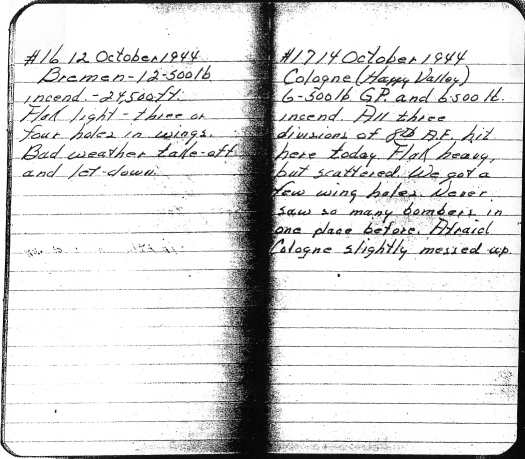 #16 12 October 1944
Bremen-12-500lb
incend.-24,500ft.
Flak light - three or
four holes in wings.
Bad weather take-off
and let-down.
#17 14 October 1944
Cologne (Happy Valley)
6-500lb GP. and 6 500 lb.
incend. All three
divisions of 8th A.F. hit
here today. Flak heavy,
but scattered. We got a
few wing holes. Never
saw so many bombers in
one place before. Afraid
Cologne slightly messed up.